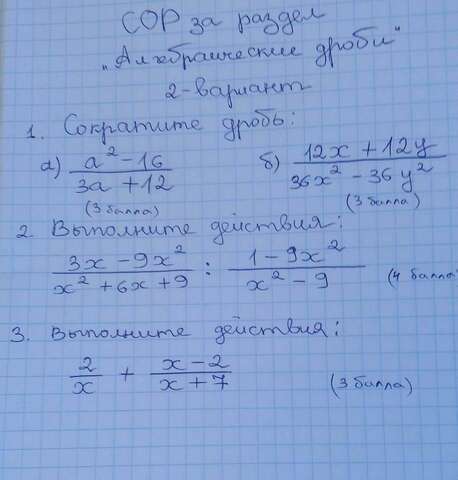 СОР за раздел
"Алгебраические дроби"
2-вариант
1. Сократите дробь:
а) (a² - 16)/(3a + 12) б) (12x + 12y)/(36x² - 36y²)
(3 балла) (3 балла)
2. Выполните действия:
(3x - 9x²)/(x² + 6x + 9) : (1 - 9x²)/(x² - 9) (4 балла
3. Выполните действия:
2/x + (x - 2)/(x + 7) (3 балла)